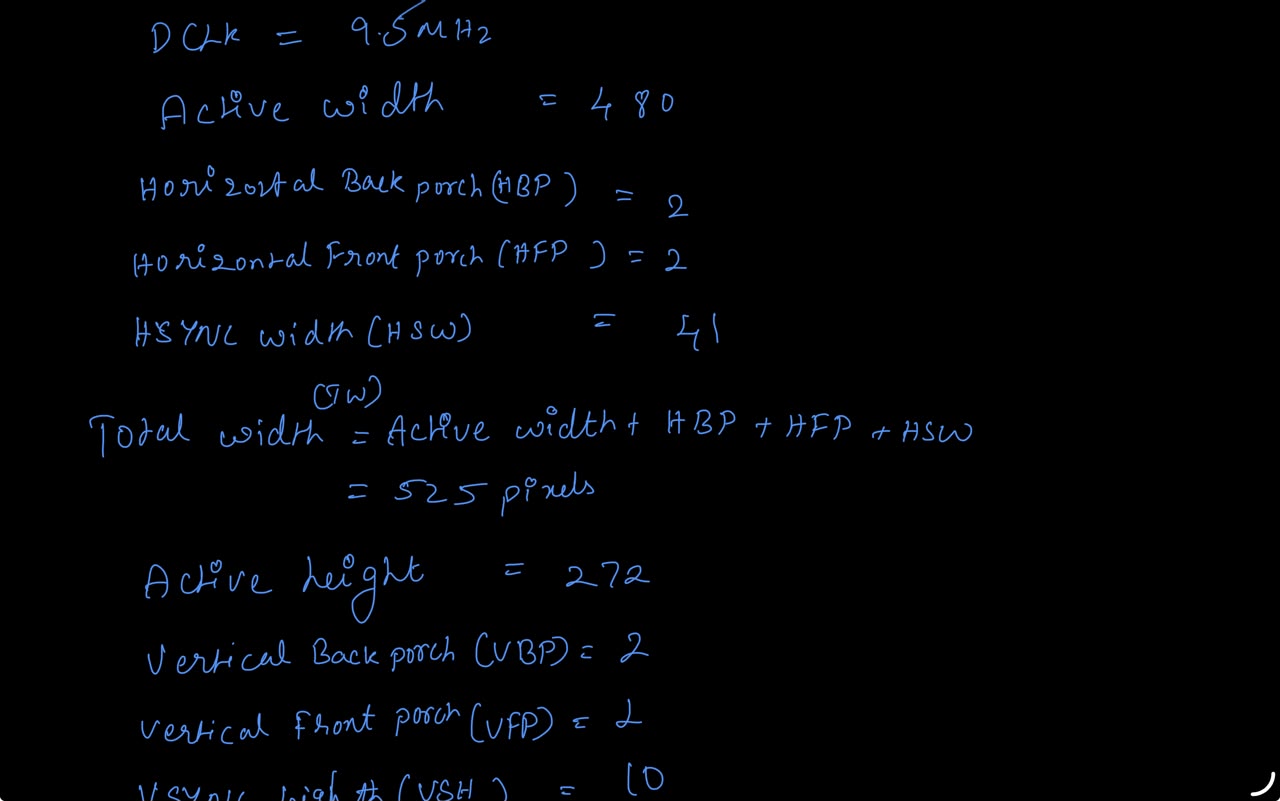 DCLK = 9.5MHz
Active width = 480
Horizontal Back porch (HBP) = 2
Horizontal Front porch (HFP) = 2
HSYNC width (HSW) = 41
(TW)
Total width = Active width + HBP + HFP + HSW
= 525 pixels
Active height = 272
Vertical Back porch (VBP) = 2
Vertical Front porch (VFP) =
(VSH) = 10